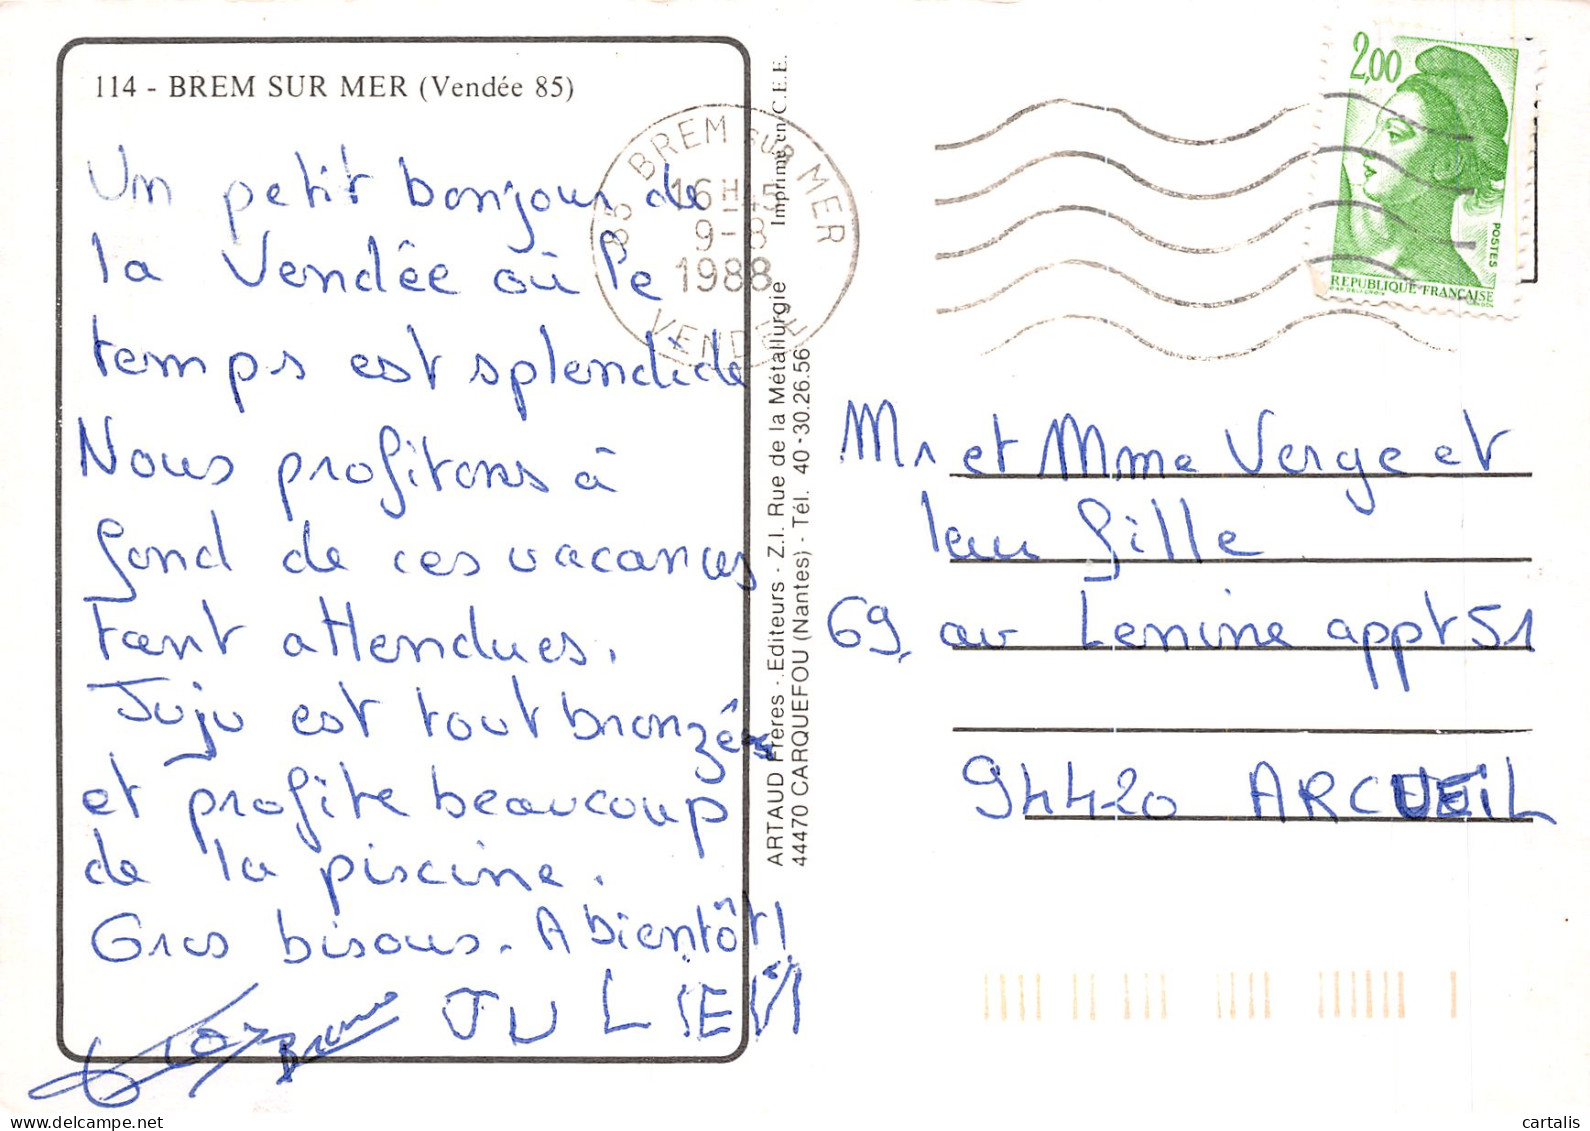 114 - BREM SUR MER (Vendée 85)
Un petit bonjour de
la Vendée où le
temps est splendide
Nous profitons à
fond de ces vacances
tant attendues.
Juju est tout bronzé
et profite beaucoup
de la piscine.
Gros bisous. A bientôt!
JULIEN
Bruno
ARTAUD Frères - Editeurs - Z.I. Rue de la Métallurgie Imprimé en C.E.E.
44470 CARQUEFOU (Nantes) - Tél. 40-30.26.56
85 BREM SUR MER
16H45
9-8
1988
VENDEE
2,00
POSTES
REPUBLIQUE FRANÇAISE
Mr et Mme Verge et
leur fille
69, av Lenine appt 51
94420 ARCUEIL
cartalis